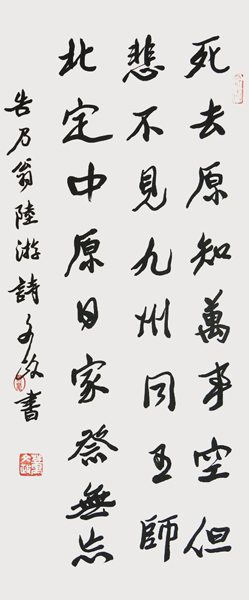 死去原知萬事空但
悲不見九州同王師
北定中原日家祭無忘
告乃翁陸游詩書